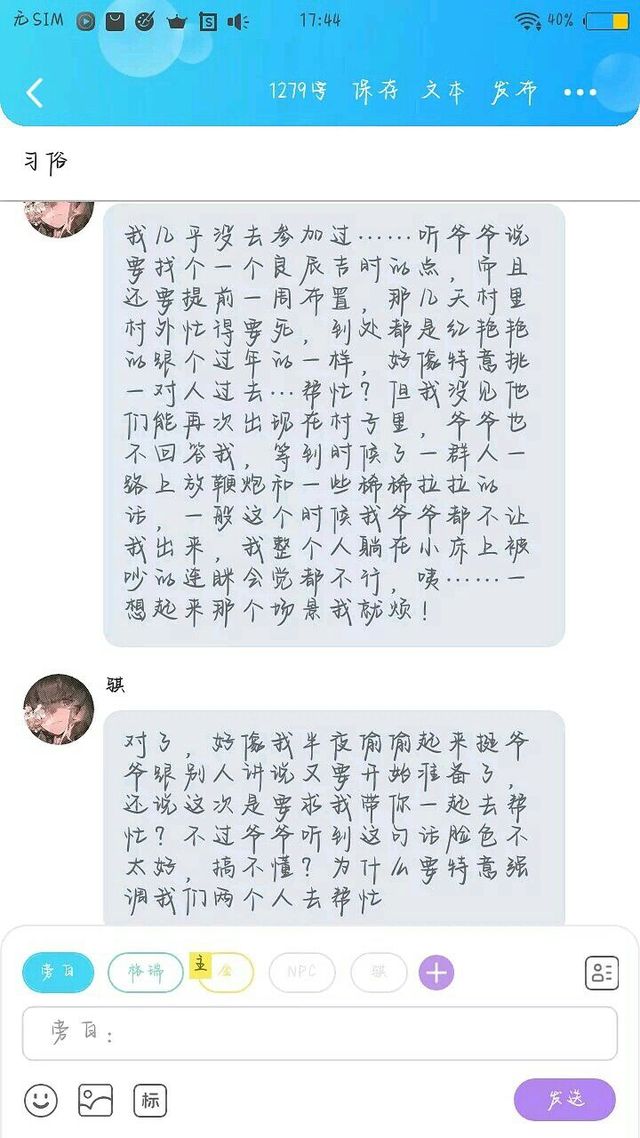 无SIM 17:44 40%
1279字 保存 文本 发布
习俗
我几乎没去参加过……听爷爷说
要找个一个良辰吉时的点，而且
还要提前一周布置，那几天村里
村外忙得要死，到处都是红艳艳
的跟个过年的一样，好像特意挑
一对人过去…帮忙？但我没见他
们能再次出现在村亏里，爷爷也
不回答我，等到时候了一群人一
路上放鞭炮和一些稀稀拉拉的
话，一般这个时候我爷爷都不让
我出来，我整个人躺在小床上被
吵的连眯会觉都不行，咦……一
想起来那个场景我就烦！
骐
对了，好像我半夜偷偷起来挺爷
爷跟别人讲说又要开始准备了，
还说这次是要求我带你一起去帮
忙？不过爷爷听到这句话脸色不
太好，搞不懂？为什么要特意强
调我们两个人去帮忙
旁白 格瑞 主 金 NPC 骐
旁白：
标 发送